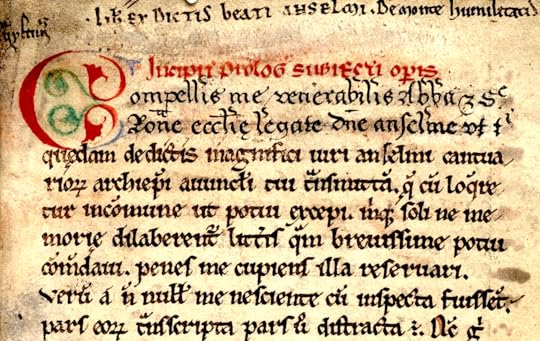 liber ex dictis beati anselmi. De monte humilitatis
Incipit prologus subiecti operis
Compellis me venerabilis abba & sce
Rome ecclie legate dne anselme ut t'
quedam de dictis magnifici viri anselmi cantua
rioꝝ archiepi avunculi tui tnsmittā. q̄ cū loq̄re
tur in comune ut potui excepi. mq̄ soli ne me
morie dilaberent᷑ litt̄is q̄m brevissime potui
cōmdavi. penes me cupiens illa reservari.
Verū a ū null' me nesciente cū inspecta fuisset.
pars eoꝝ tnsscripta pars u̓ distracta ē. Nec g̓